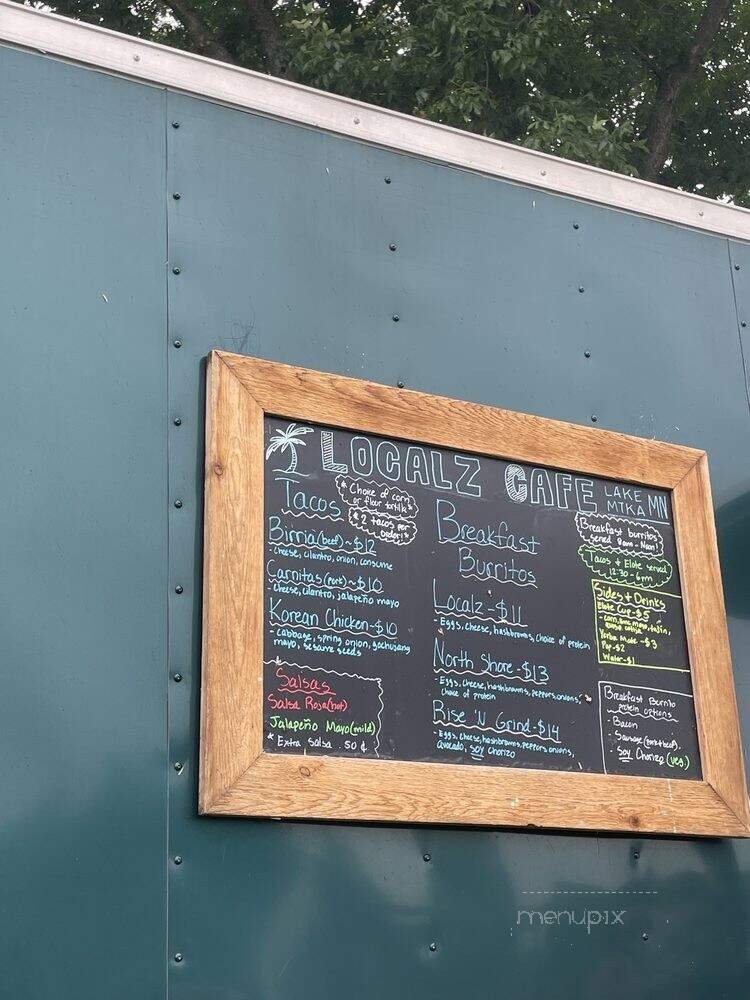 LOCALZ CAFE LAKE MTKA MN
Tacos
* Choice of corn
or flour tortilla *
* 2 tacos per
order! *
Birria (beef) - $12
- Cheese, cilantro, onion, consume
Carnitas (Pork) - $10
- Cheese, cilantro, jalapeño mayo
Korean Chicken - $10
- Cabbage, spring onion, gochujang
mayo, sesame seeds
* Salsas
Salsa Rosa (hot)
Jalapeño Mayo (mild)
* Extra Salsa 50¢
Breakfast
Burritos
Localz - $11
- Eggs, Cheese, hashbrowns, choice of protein
North Shore - $13
- Eggs, Cheese, hashbrowns, peppers, onions,
choice of protein
Rise 'N Grind - $14
- Eggs, Cheese, hashbrowns, peppers, onions,
avocado, soy chorizo
Breakfast burritos
served 8am - Noon!
Tacos + Elote served
12:30 - 6pm
Sides + Drinks
Elote Cup - $5
- corn, lime, mayo, tajin,
Yerba Mate - $3
Pop - $2
Water - $1
Breakfast Burrito
protein options
- Bacon
- Sausage (pork + beef)
- Soy Chorizo (veg.)
menupix